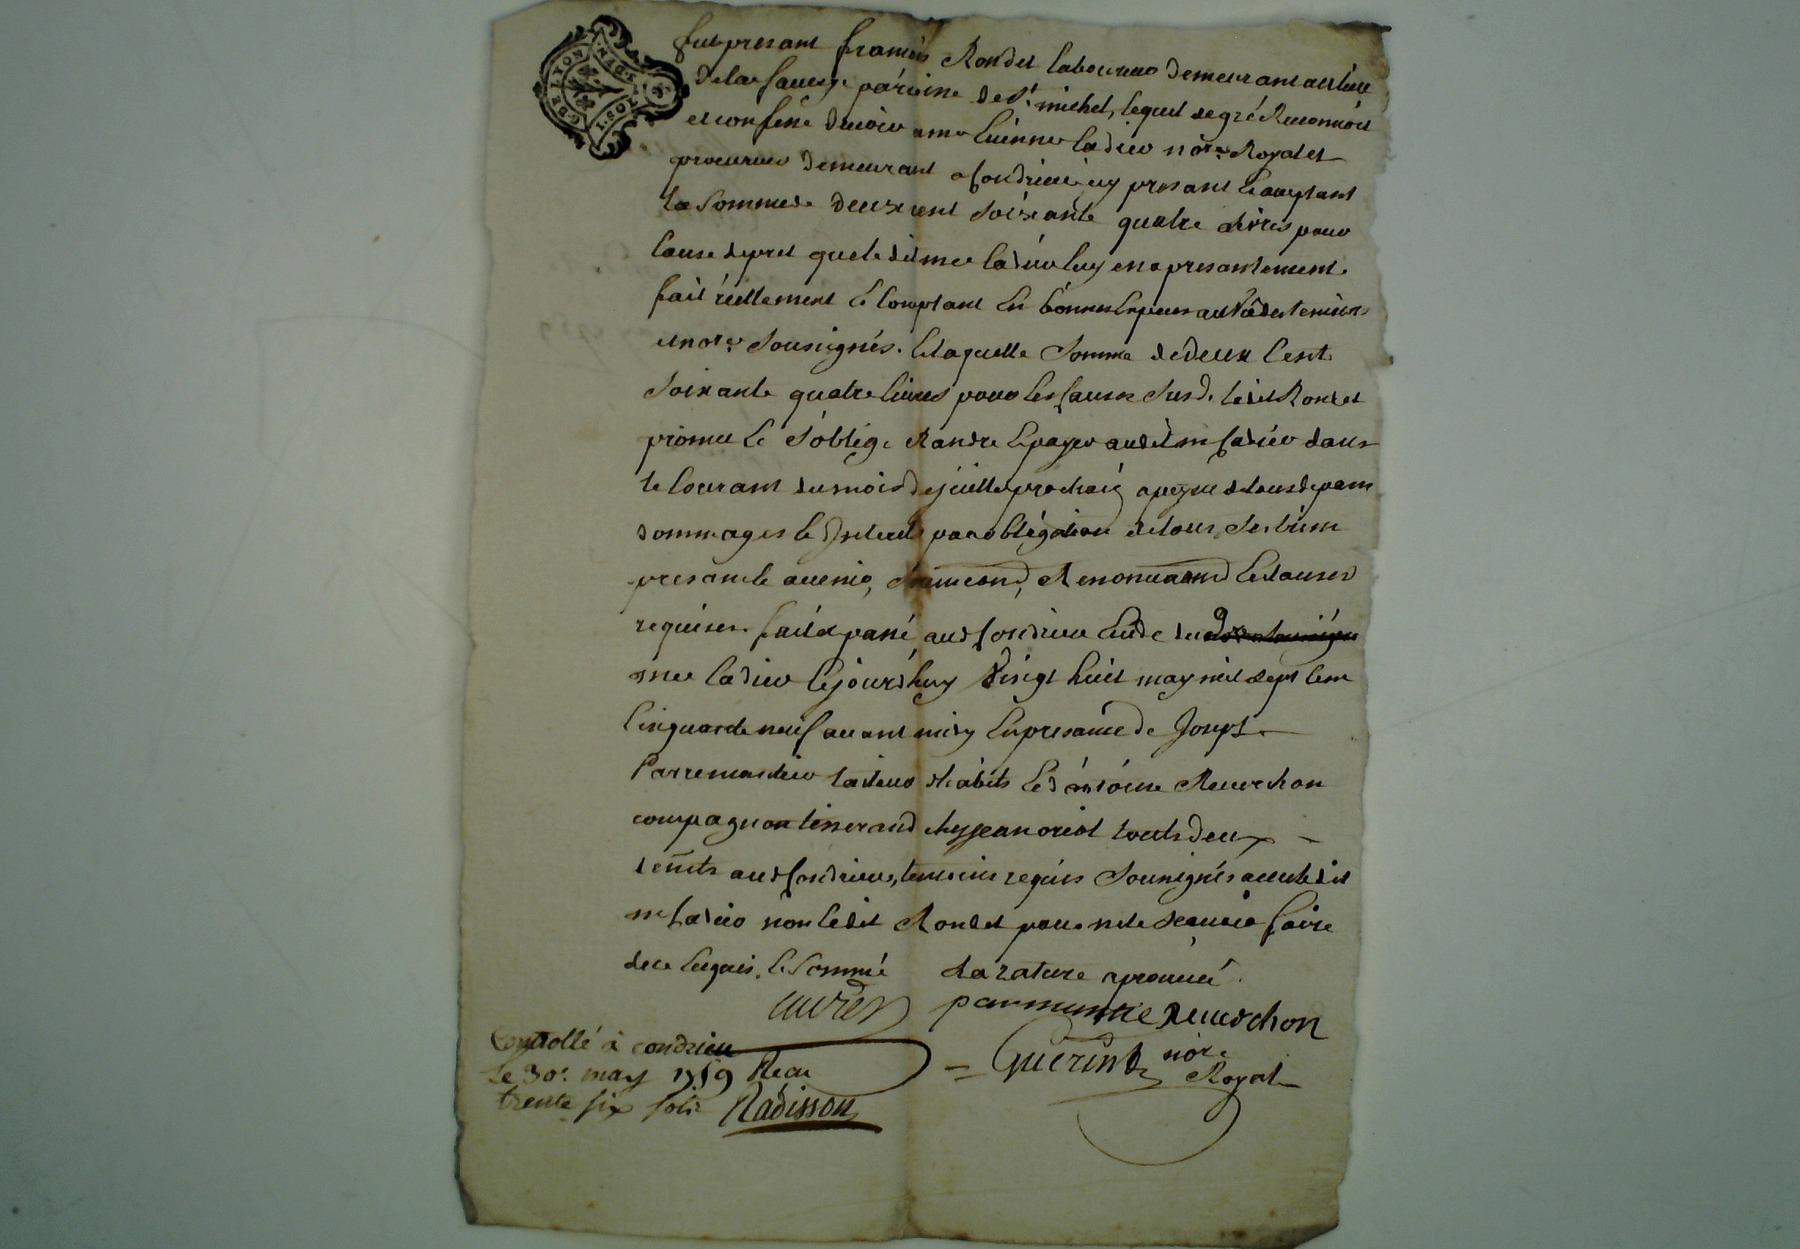 GEN. DE LYON
1. SOL 4 D.
fut presant francois Rondet laboureur demeurant au lieu
de la faverge paroisse de St. michel, lequel de gré Reconnoit
et confesse devoir a me Etienne Cadier nore. Royal et
procureur demeurant a Condrieu icy presant Et aceptant
la Somme de deux cent Soixante quatre livres pour
Cause de pret que le dit me Cadier luy en a presantement
fait réellement Et Comptant En bonnes Especes au Vû des temoins
et nore. Soussignés. Et laquelle Somme de deux Cent
Soixante quatre livres pour les Causes Susd. ledit Rondet
promet Et S'oblige Randre Et payer audit me Cadier dans
le Courant du mois de juillet prochain a peyne de tous depans
dommages Et Interets par obligation de tous Ses biens
presant Et avenir, Renoncant Et clauses
requises. fait et passé aud Condrieu Etude dud
me Cadier Cejourdhuy Vingt huit may mil Sept Cent
Cinquante neuf avant midy En presance de Joseph
Parremantier tailleur dhabits Et d'antoine Reverchon
compagnon tisserand chez jean oriol touts deux
demts aud Condrieu, temoins requis Soussignés avec ledit
me Cadier non ledit Rondet pour ne le Scavoir faire
de ce Enquis. Et Sommé La rature aprouvé.
Cadier parmantie Reverchon
Guerin nore
Royal
Controllé à condrieu
Le 30e. may 1759 Recu
trente six sols Radisson